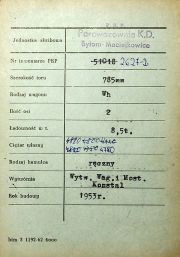 P.K.P.
Jednostka służbowa Parowozownia K.D.
Bytom-Maciejkowice
Nr inwentarza PKP 51018 2627-D
Szerokość toru 785mm
Rodzaj wagonu Wh
Ilość osi 2
Ładowność w t. 8,5t.
Ciężar własny
Rodzaj hamulca ręczny
Wytwórnia Wytw. Wag. i Most.
Konstal
Rok budowy 1953r.